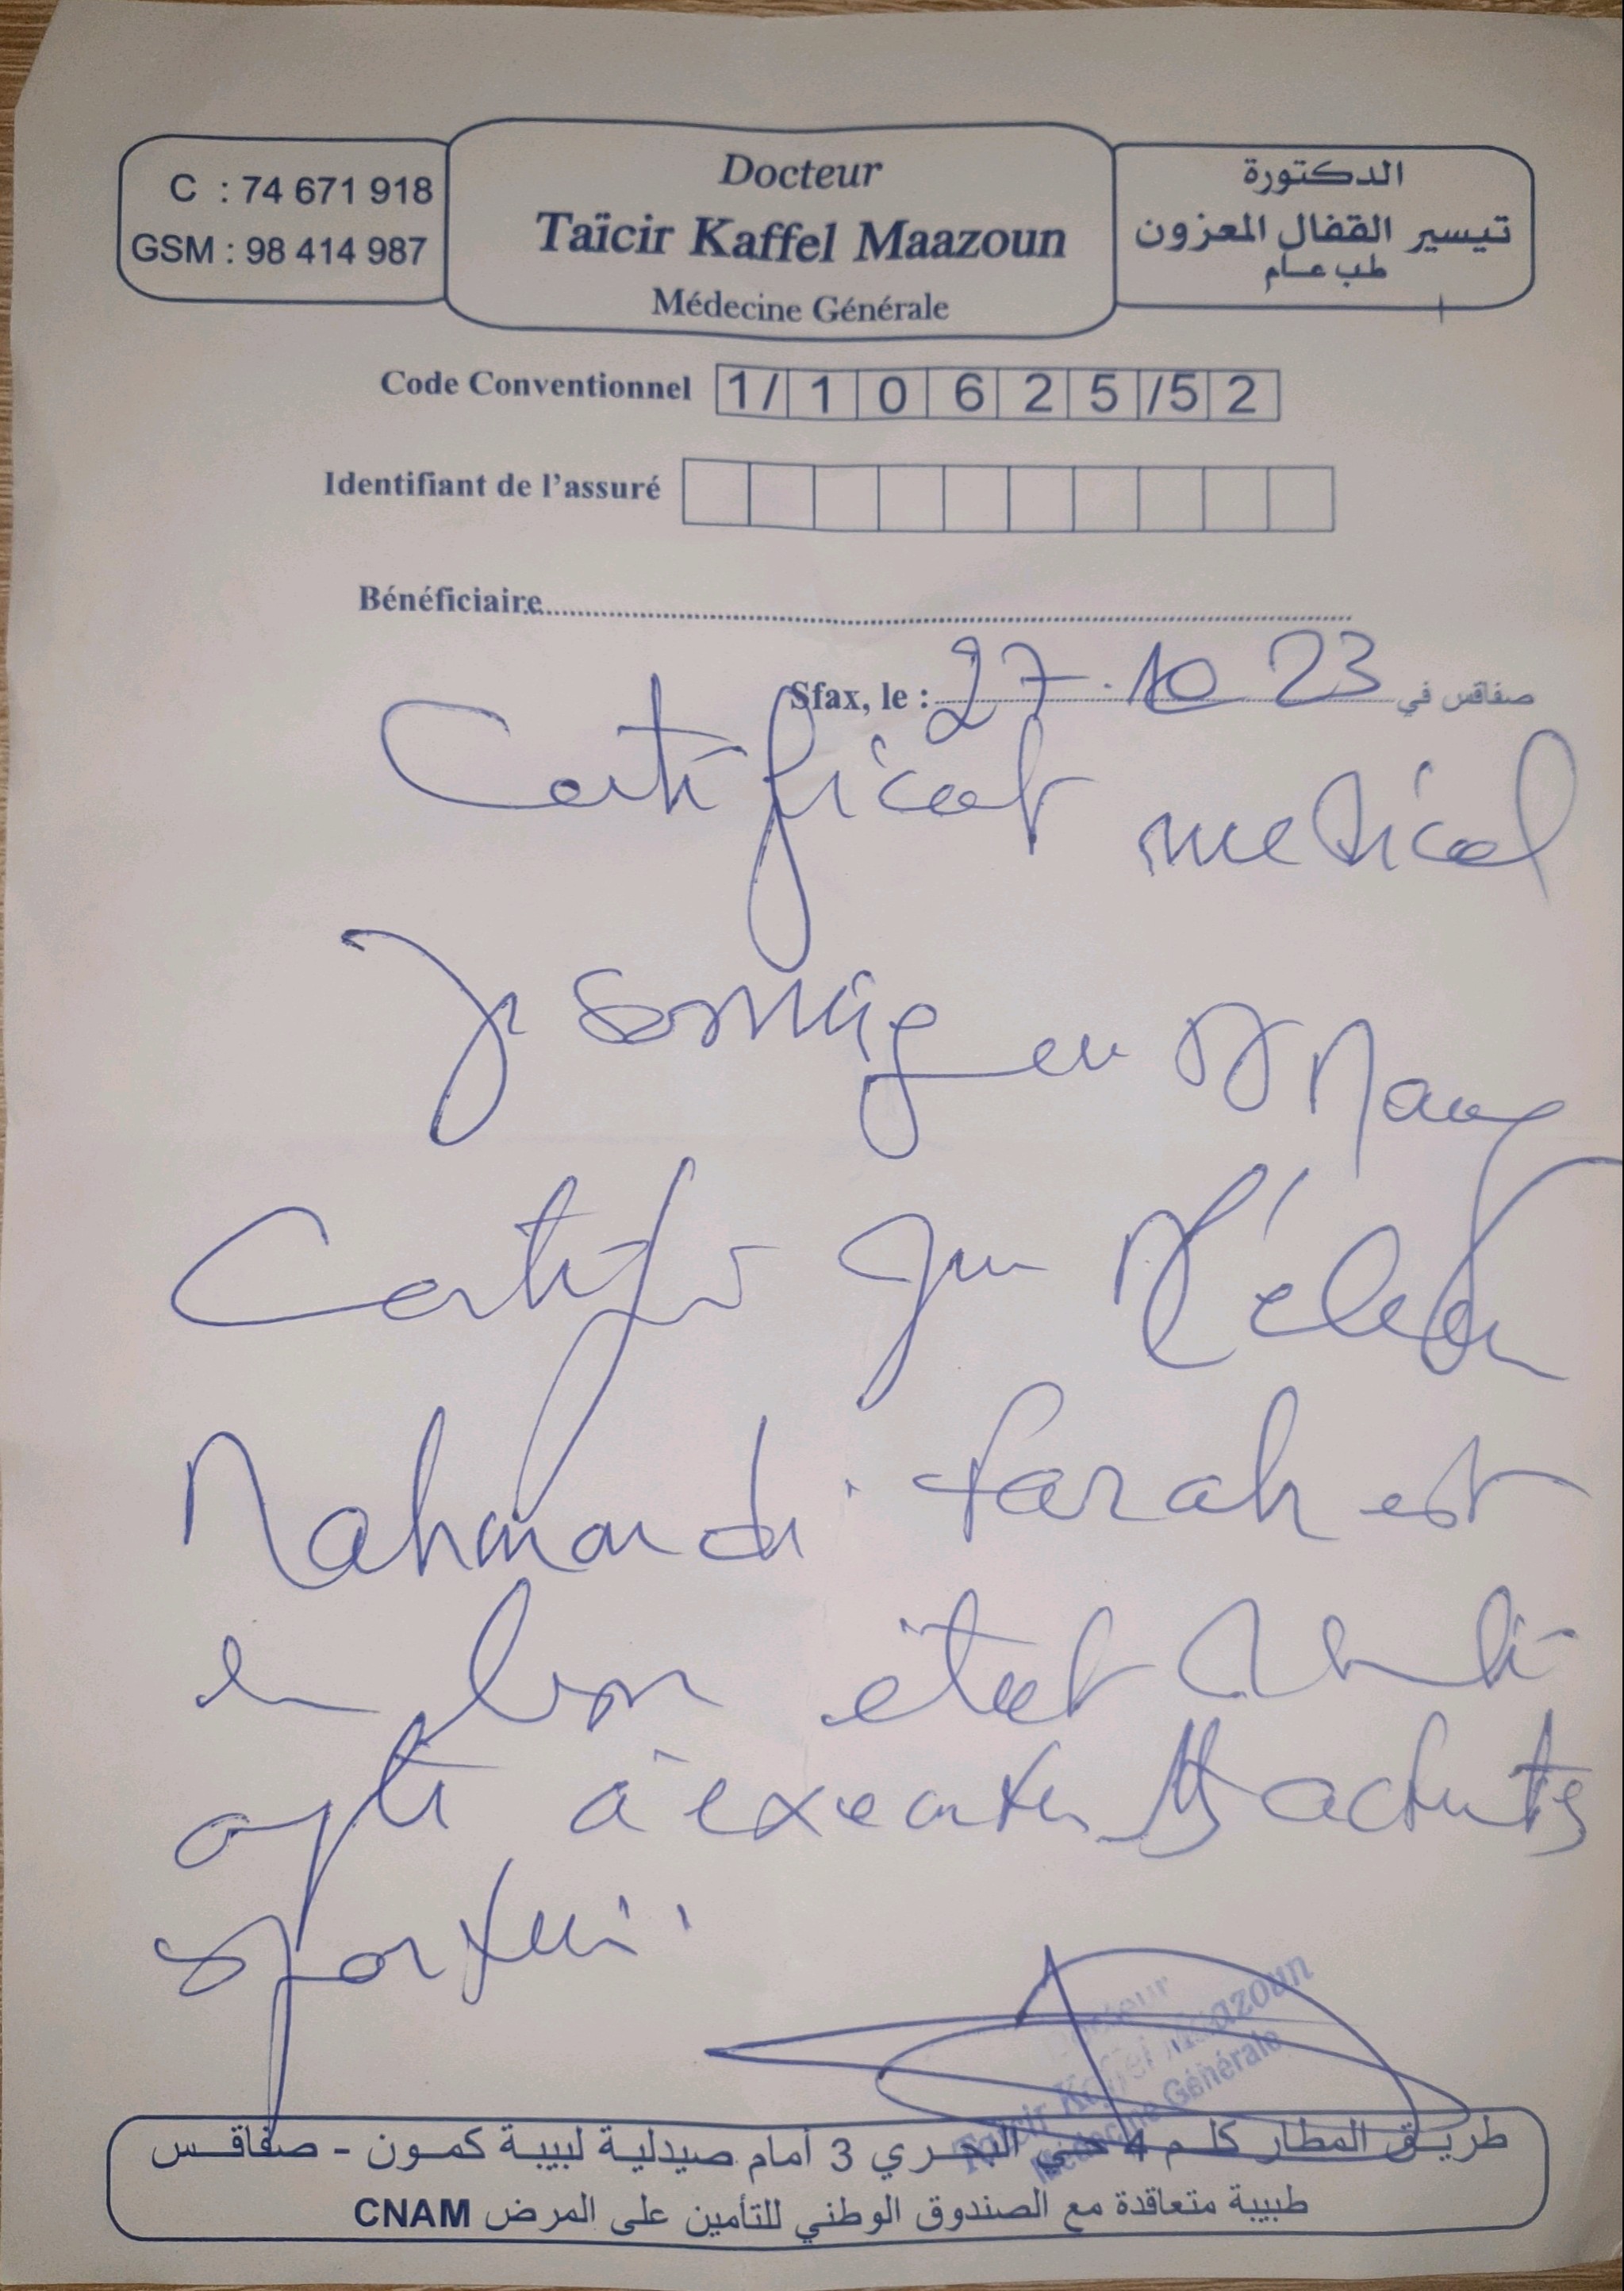 C : 74 671 918
GSM : 98 414 987
Docteur
Taïcir Kaffel Maazoun
Médecine Générale
الدكتورة
تيسير القفال المعزون
طب عام
Code Conventionnel 1/ 1 0 6 2 5 /5 2
Identifiant de l'assuré
Bénéficiaire
Sfax, le : 27.10 23 صفاقس في
Certificat medical
Je soussignée Dr
Certifie que l'élève
Mahmoudi Farah est
en bon état
apte à executer activités
sportives
Docteur
Taïcir Kaffel Maazoun
Médecine Générale
طريق المطار كلم 4 حي البحري 3 أمام صيدلية لبيبة كمون - صفاقس
طبيبة متعاقدة مع الصندوق الوطني للتأمين على المرض CNAM